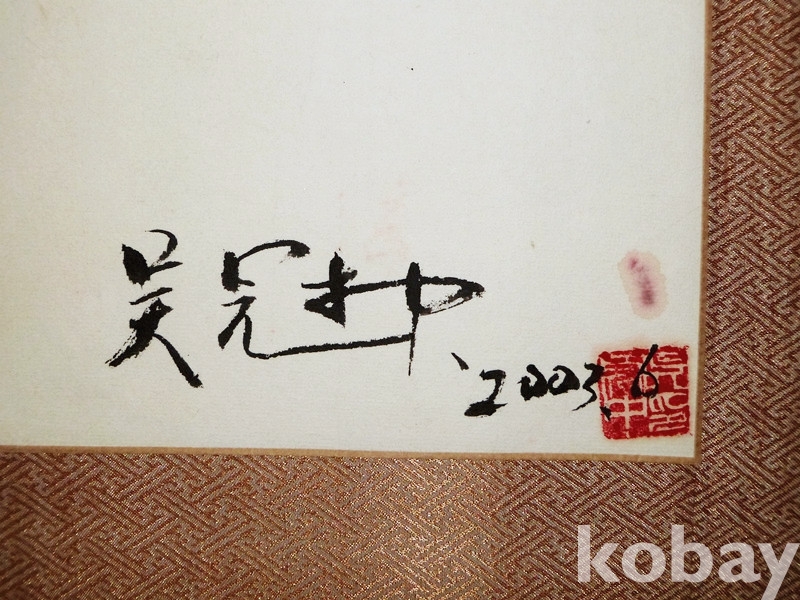 吴冠中
'2003.6
kobay